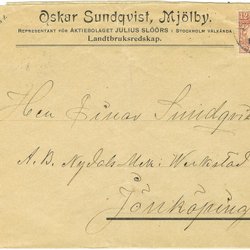 Oskar Sundqvist, Mjölby.
Representant för Aktiebolaget JULIUS SLÖÖRS i Stockholm välkända
Landtbruksredskap.
Herr Einar Sundqvist
A. B. Nydals Mek: Werkstad
Jönköping